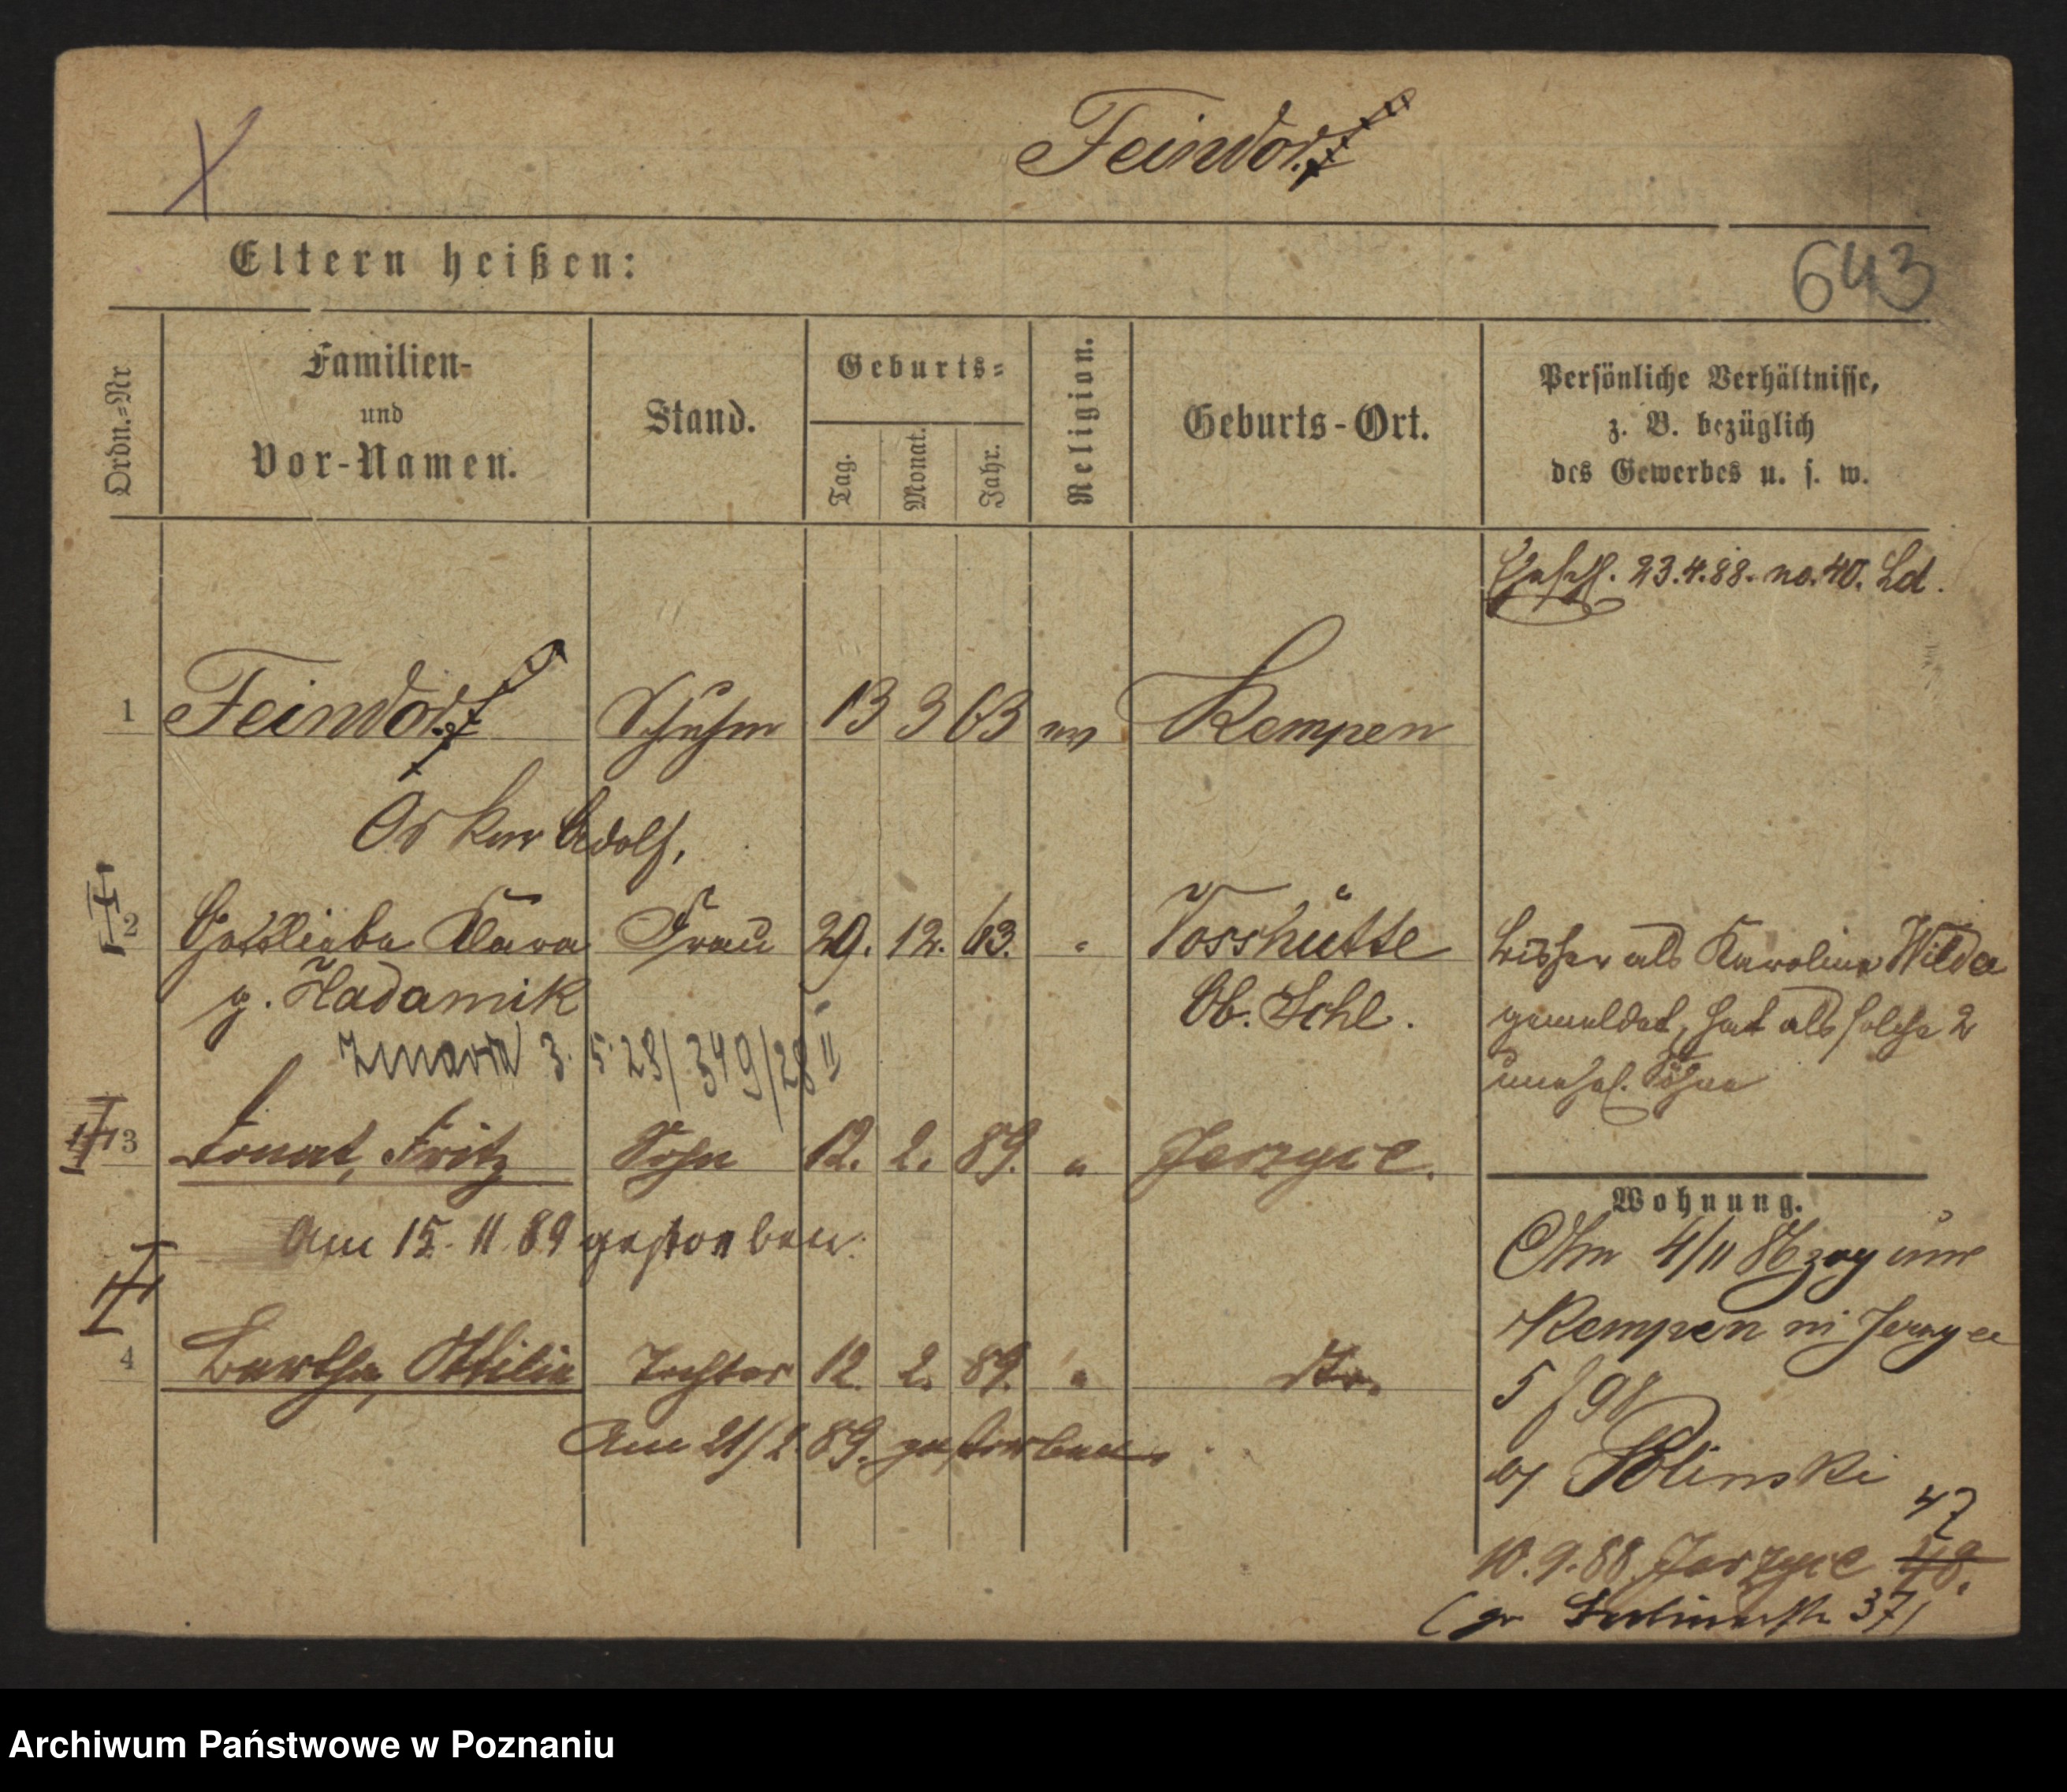 Feindor
Eltern heißen:
643
Ordn.=Nr
Familien-
und
Vor-Namen.
Stand.
Geburts=
Tag.
Monat.
Jahr.
Religion.
Geburts-Ort.
Persönliche Verhältnisse,
z. B. bezüglich
des Gewerbes u. s. w.
23.4.88. no. 40. Ld.
1 Feindor Schuhm 13 3 63 ev Kempen
Oskar Adolf,
2 Gottlieba Klara Frau 29. 12. 63. " Vosshütte
g. Hadamik Ob. Schl.
bisher als Karolina Wilda
gemeldet, hat als solche 2
unehel. Söhne
zmarła 3. 5. 28/349/28 II
3 Ernst, Fritz Sohn 12. 2. 89. " Jerzyce.
Am 15. 11. 89 gestorben.
4 Bertha, Ottilie Tochter 12. 2. 89. " dto.
Am 21/2. 89. gestorben
Wohnung.
Am 4/11 86 zog von
Kempen in Jerzyce
5
by Polinski
47
10. 9. 88. Jerzyce 48.
(gr Berlinerstr 37)
Archiwum Państwowe w Poznaniu